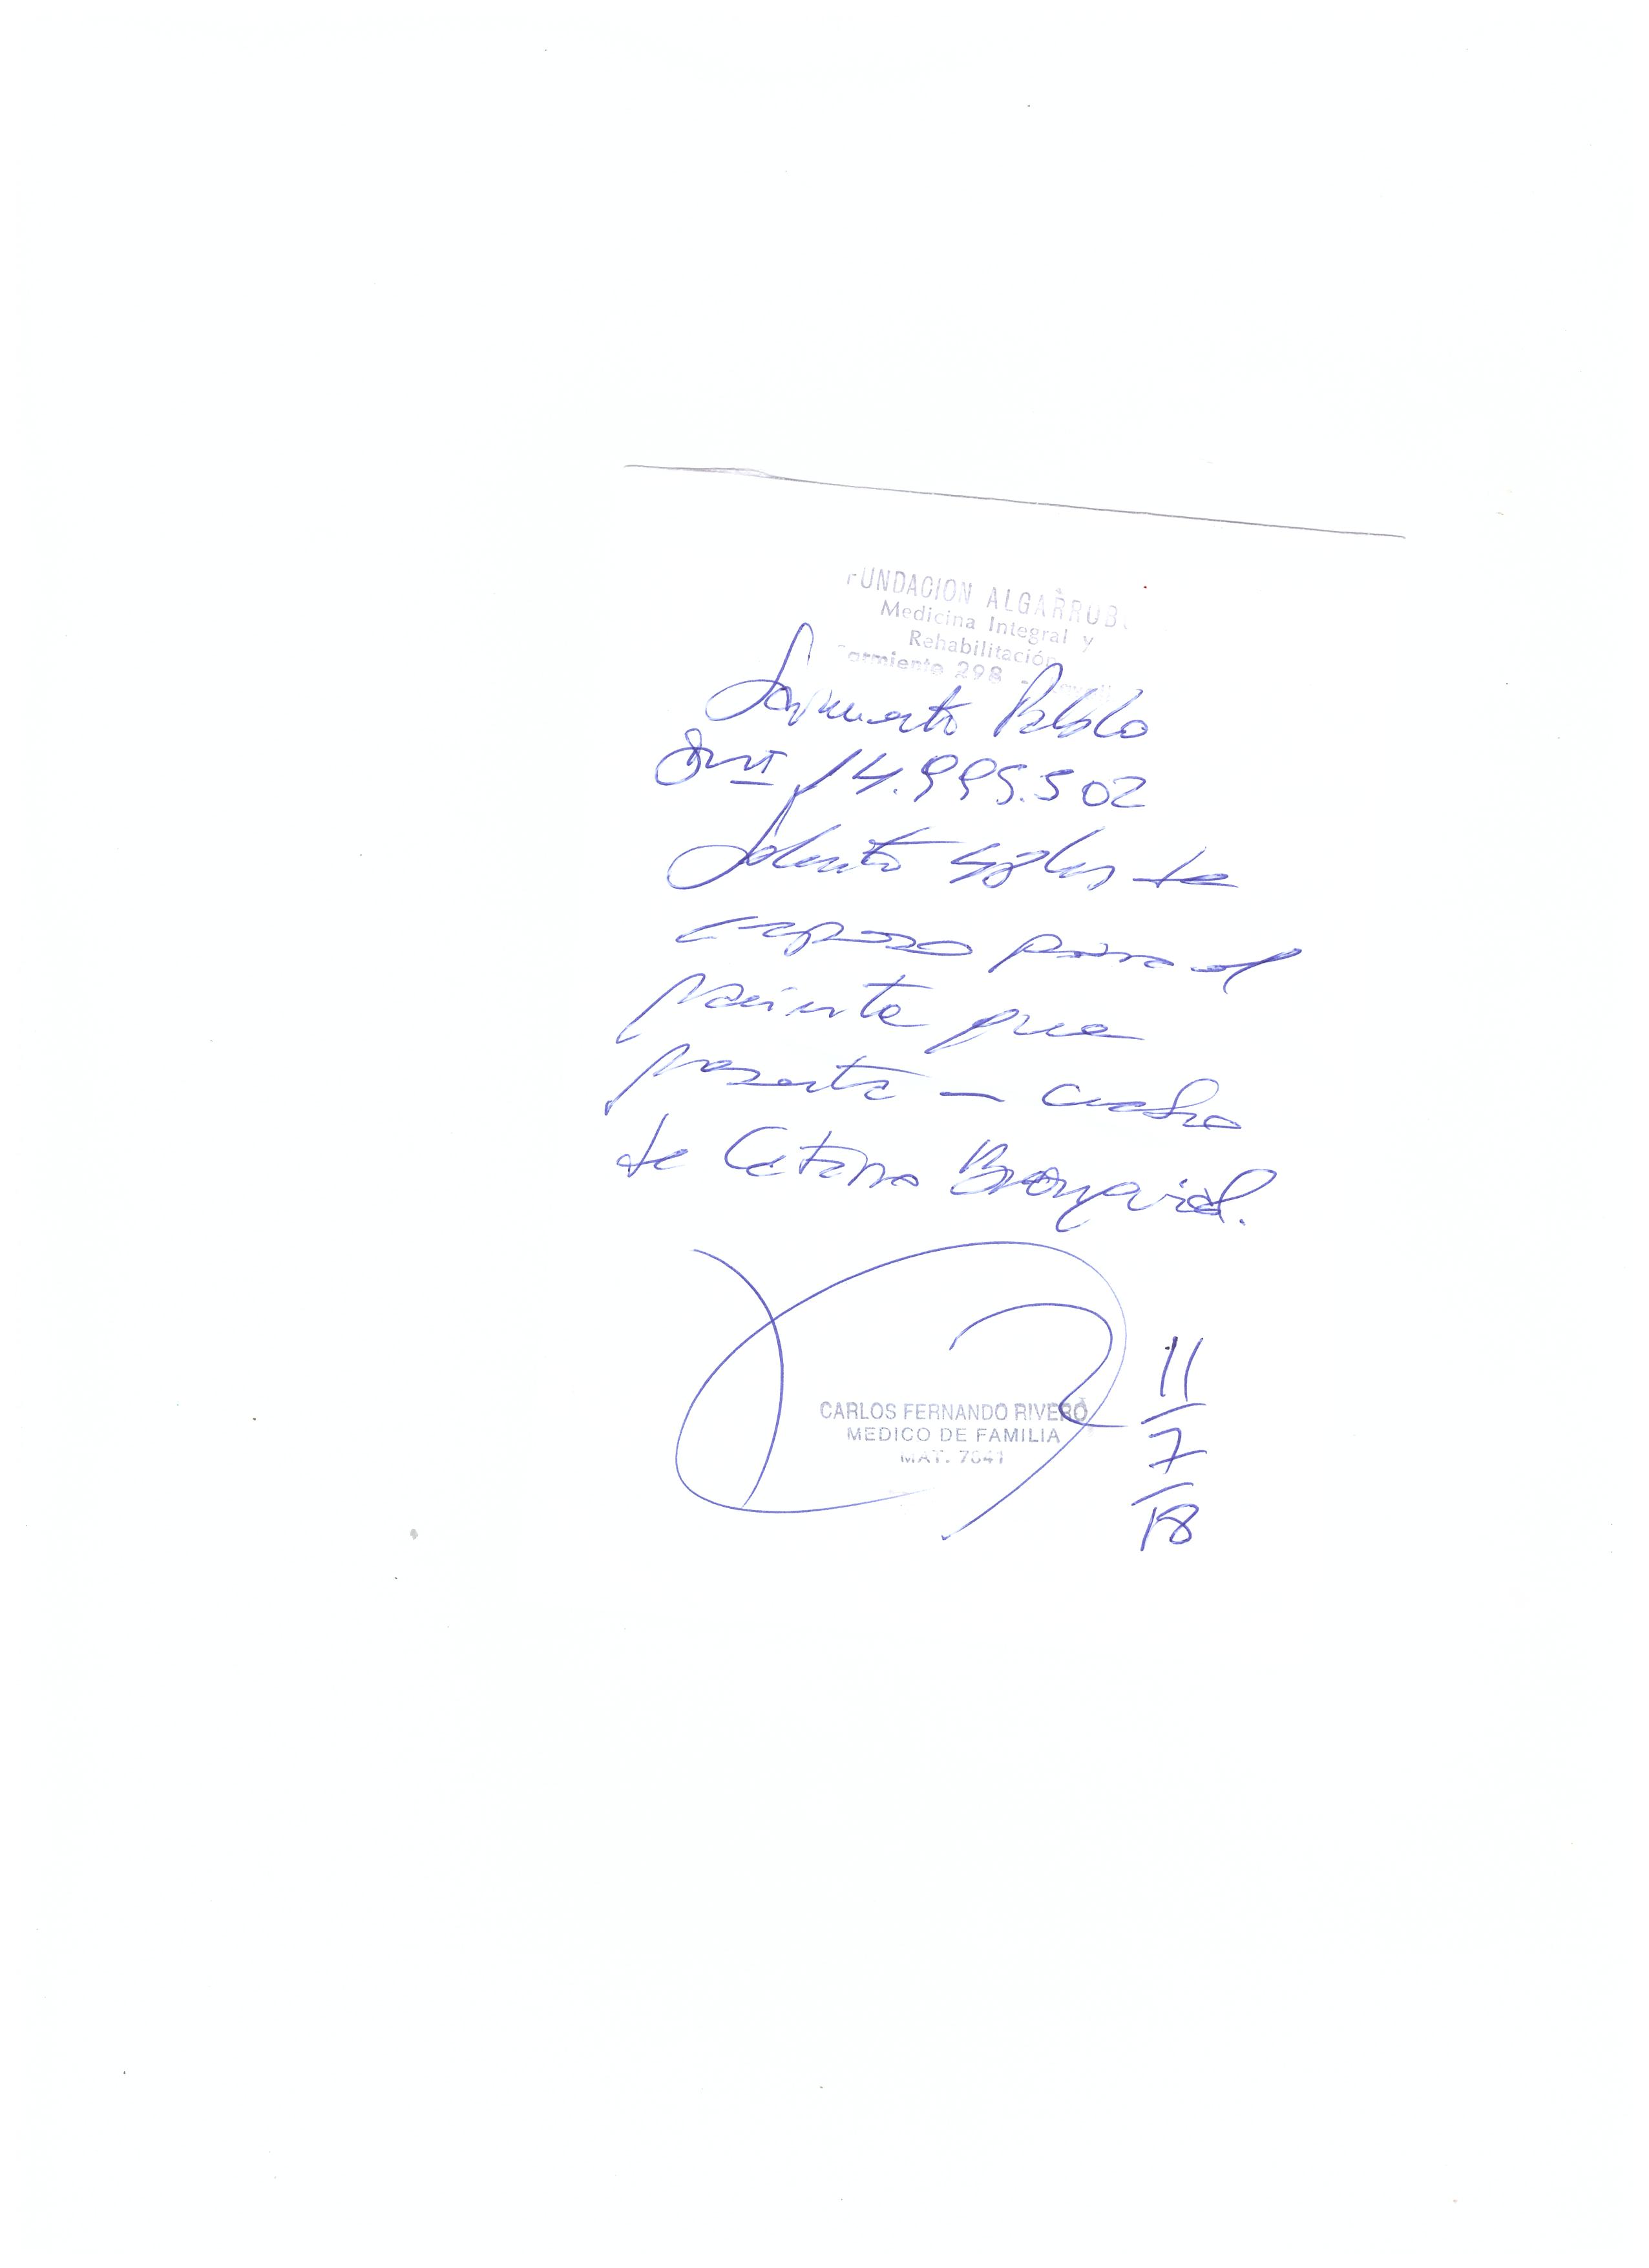 FUNDACION ALGARROBO
Medicina Integral y
Rehabilitación
Sarmiento 298 -
Sarmiento Pablo
DNI 14.995.502
Solicito 48 hs de
reposo para el
paciente que
presenta cuadro
de Catarro Bronquial.
CARLOS FERNANDO RIVERO
MEDICO DE FAMILIA
MAT. 7641
11
7
18